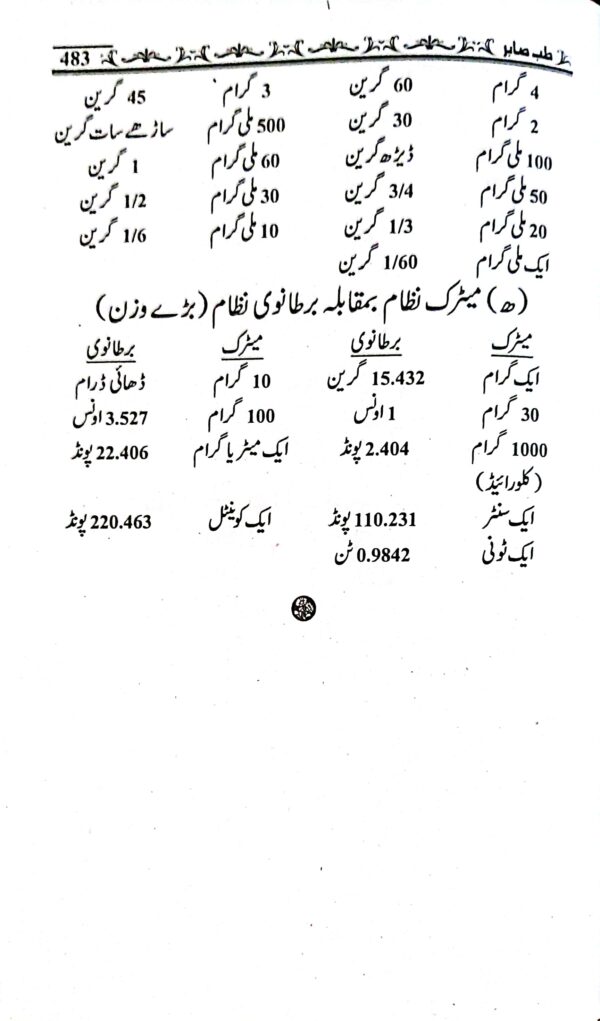 طب صابر 483
4 گرام 60 گرین 3 گرام 45 گرین
2 گرام 30 گرین 500 ملی گرام ساڑھے سات گرین
100 ملی گرام ڈیڑھ گرین 60 ملی گرام 1 گرین
50 ملی گرام 3/4 گرین 30 ملی گرام 1/2 گرین
20 ملی گرام 1/3 گرین 10 ملی گرام 1/6 گرین
ایک ملی گرام 1/60 گرین
(ھ) میٹرک نظام بمقابلہ برطانوی نظام (بڑے وزن)
میٹرک برطانوی میٹرک برطانوی
ایک گرام 15.432 گرین 10 گرام ڈھائی ڈرام
30 گرام 1 اونس 100 گرام 3.527 اونس
1000 گرام 2.404 پونڈ ایک میٹر یا گرام 22.406 پونڈ
(کلورائیڈ)
ایک سنٹر 110.231 پونڈ ایک کوینٹل 220.463 پونڈ
ایک ٹونی 0.9842 ٹن